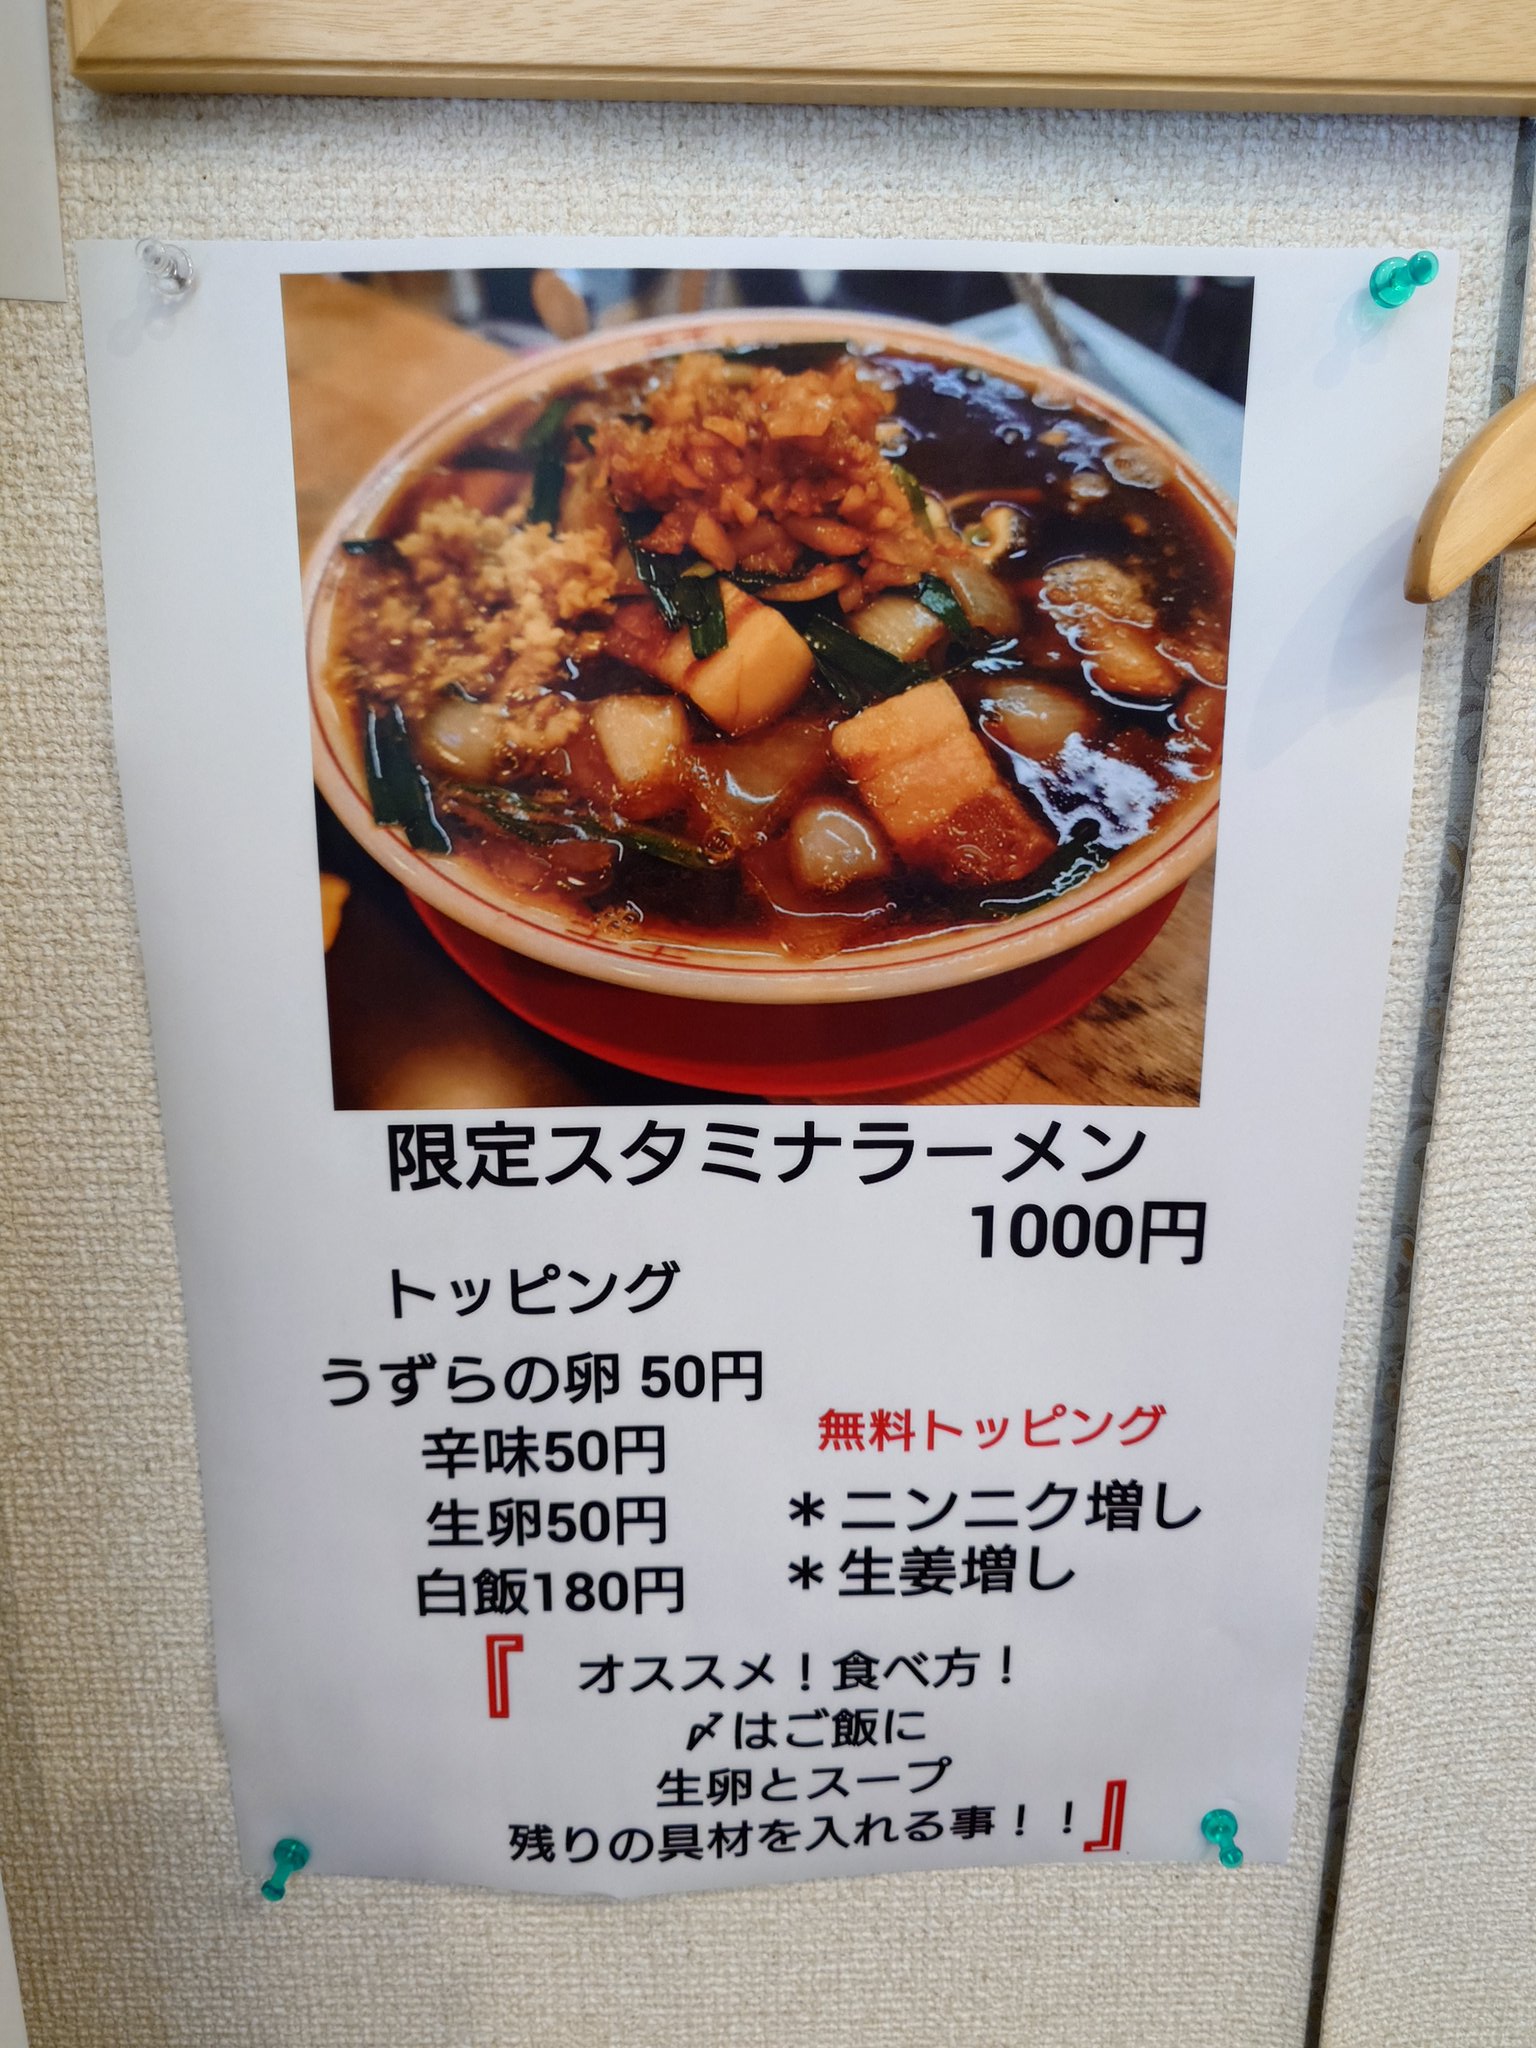 限定スタミナラーメン
1000円
トッピング
うずらの卵 50円
辛味50円
生卵50円
白飯180円
無料トッピング
＊ニンニク増し
＊生姜増し
『 オススメ！食べ方！
〆はご飯に
生卵とスープ
残りの具材を入れる事！！』